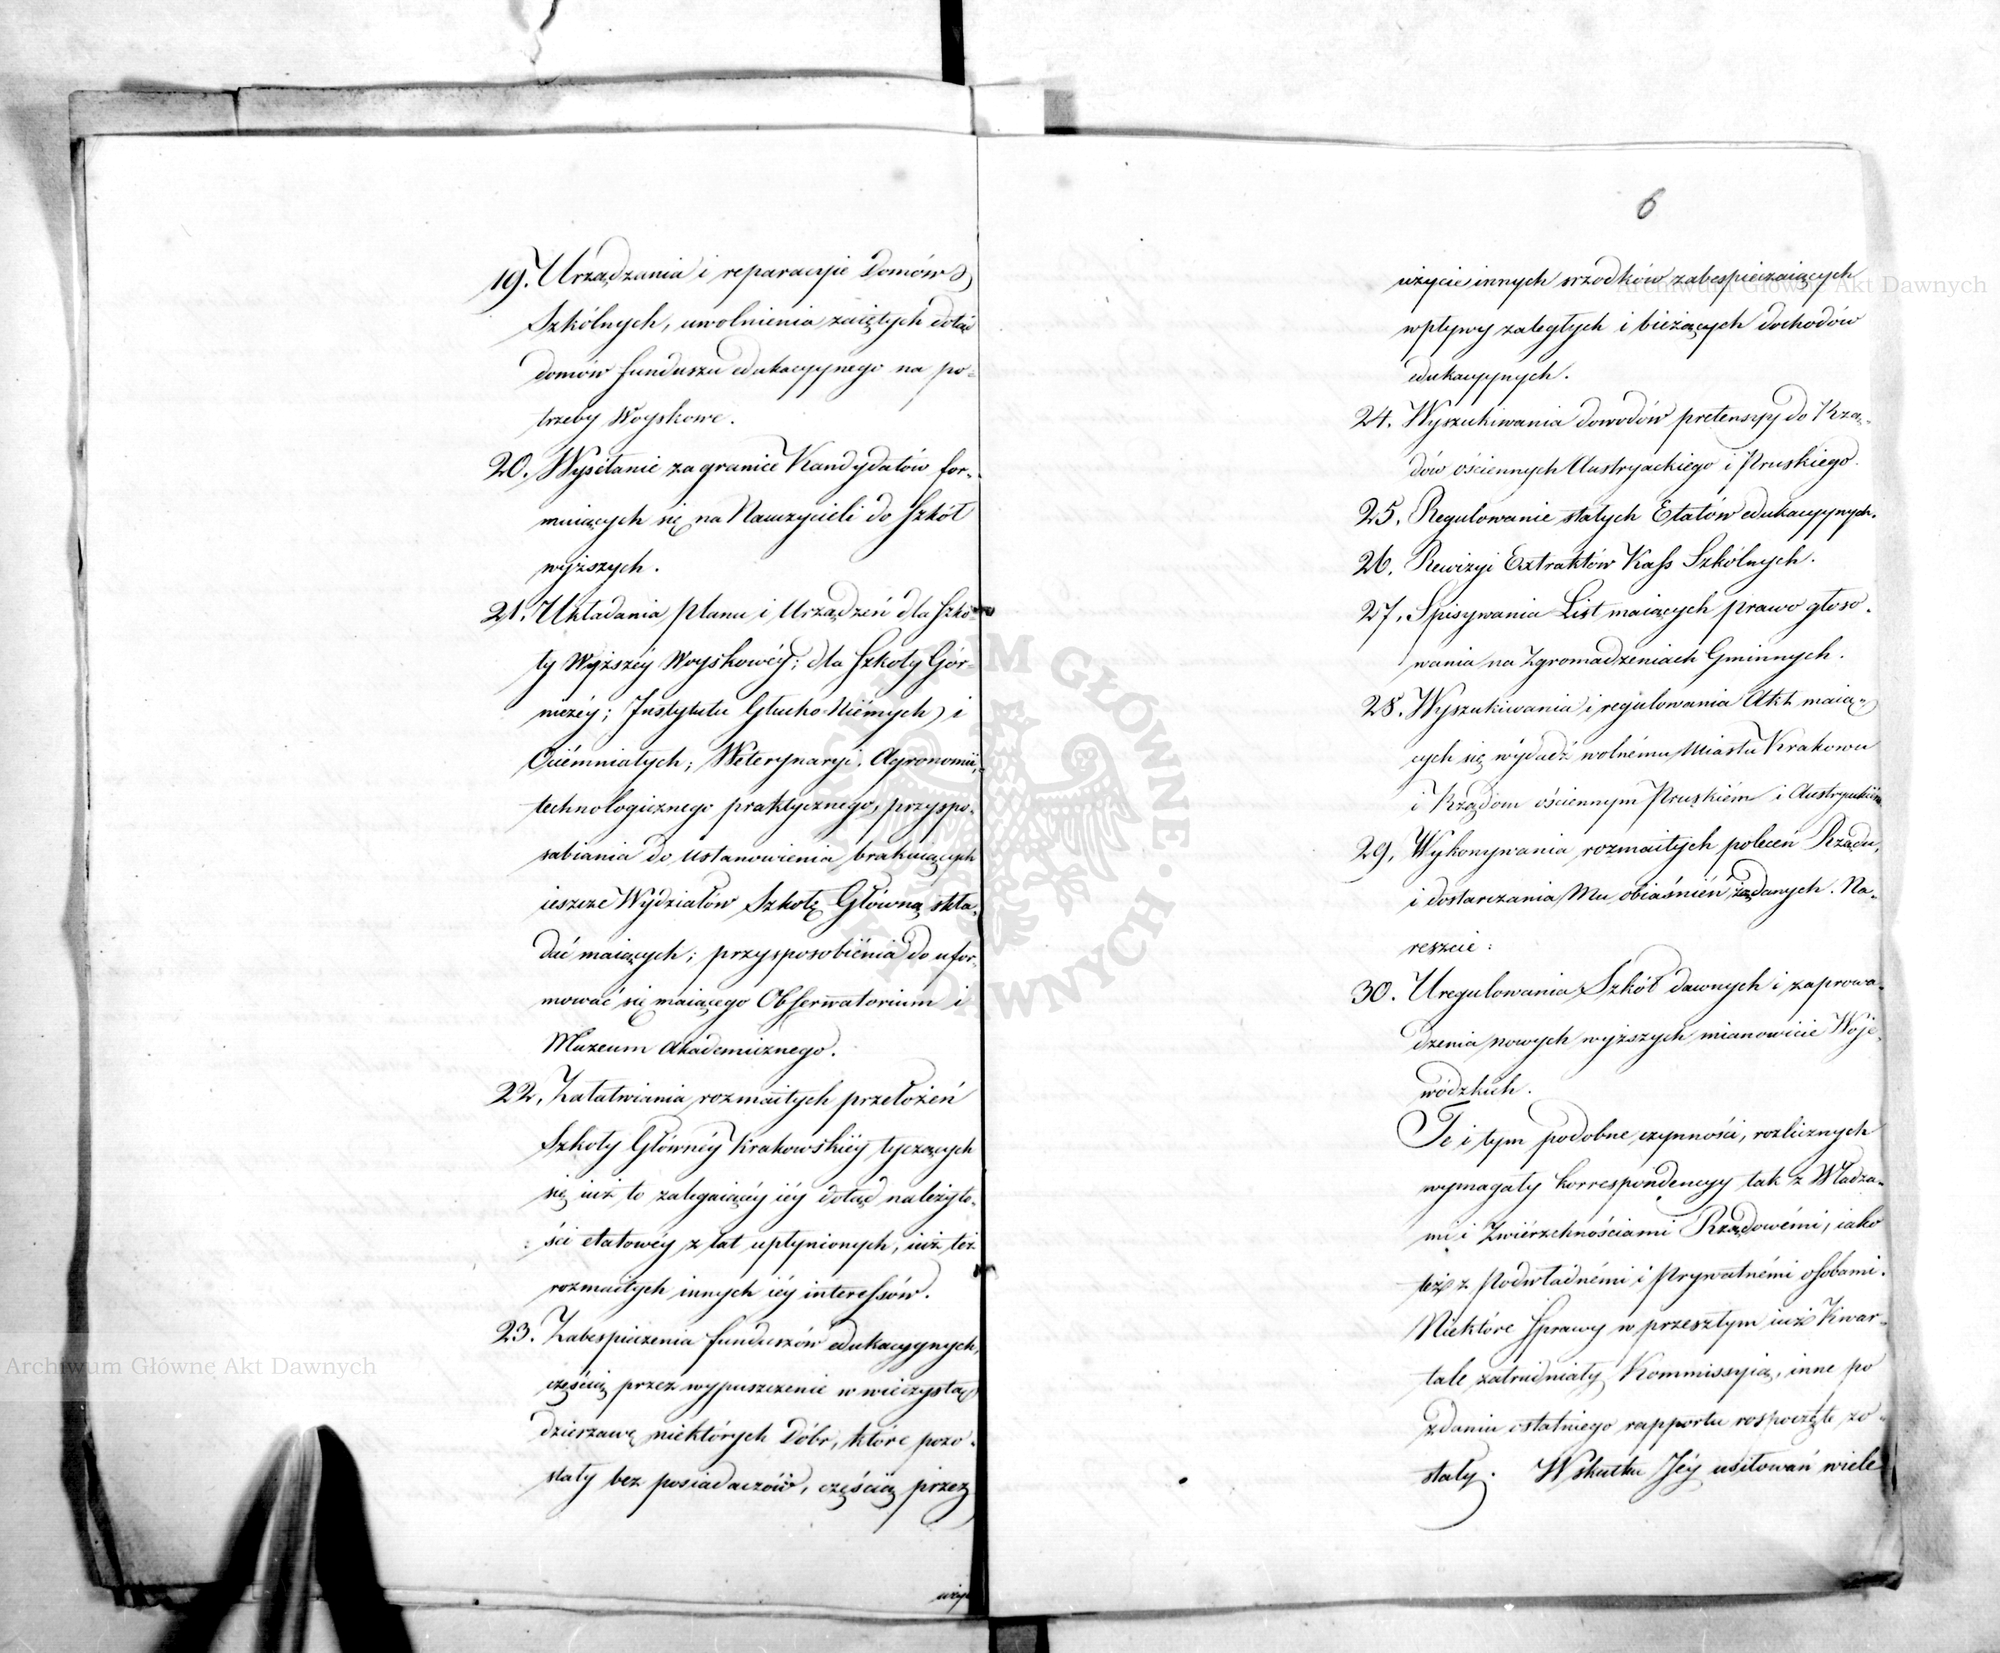 19. Urządzania i reparacyie Domów
Szkólnych, uwolnienia zaiętych dotąd
domów funduszu edukacyynego na po-
trzeby Woyskowe.
20. Wysełanie za granice Kandydatów for-
muiących się na Nauczycieli do Szkół
wyższych.
21. Układania Planu i Urządzeń dla Szko-
ły Wyższéy Woyskowéy; dla Szkoły Gór-
niczéy; Instytutu Głucho-Niémych i
Ociémniałych; Weterynaryi, Agronomii,
technologicznego praktycznego, przyspo-
sabiania do ustanowienia brakuiących
ieszcze Wydziałów Szkołę Główną skła-
dać maiących; przysposobiénia do ufor-
mować się maiącego Obserwatorium i
Muzeum Akademicznego.
22. Załatwiania rozmaitych przełożeń
Szkoły Głównéy Krakowskiéy tyczących
się iuż to zalegaiącéy iéy dotąd należyto-
ści etatowéy z lat upłynionych, iuż też
rozmaitych innych iéy interessów.
23. Zabespieczenia funduszów edukacyynych,
częścią przez wypuszczenie w wieczystą
dzierzawę niektórych Dóbr, które pozo-
stały bez posiadaczów, częścią przez
użyc
6
użycie innych srzodków zabespieczaiących
wpływy zaległych i bieżących dochodów
edukacyynych.
24. Wyszukiwania dowodów pretensyy do Rzą-
dów ościennych Austryackiego i Pruskiego.
25. Regulowanie stałych Etatów edukacyynych.
26. Rewizyi Extraktów Kass Szkólnych.
27. Spisywania List maiących prawo głoso-
wania na Zgromadzeniach Gminnych.
28. Wyszukiwania i regulowania Akt maią-
cych się wydadź wolnému Miastu Krakowu
i Rządom ościennym Pruskiém i Austryackiém
29. Wykonywania rozmaitych poleceń Rządu,
i dostarczania Mu obiaśnień żądanych. Na-
reszcie:
30. Uregulowania Szkół dawnych i zaprowa-
dzenia nowych wyższych mianowicie Woje-
wódzkich.
Te i tym podobne czynności, rozlicznych
wymagały korrespondencyy tak z Władza-
mi i Zwiérzchnościami Rządowémi, iako
też z Podwładnémi i Prywatnémi osobami.
Niektóre Sprawy w przeszłym iuż Kwar-
tale zatrudniały Kommissyią, inne po
zdaniu ostatniego rapportu rospoczęte zo-
stały. W skutku Jéy usiłowań wiele
Archiwum Główne Akt Dawnych
Archiwum Główne Akt Dawnych
ARCHIWUM GŁÓWNE AKT DAWNYCH